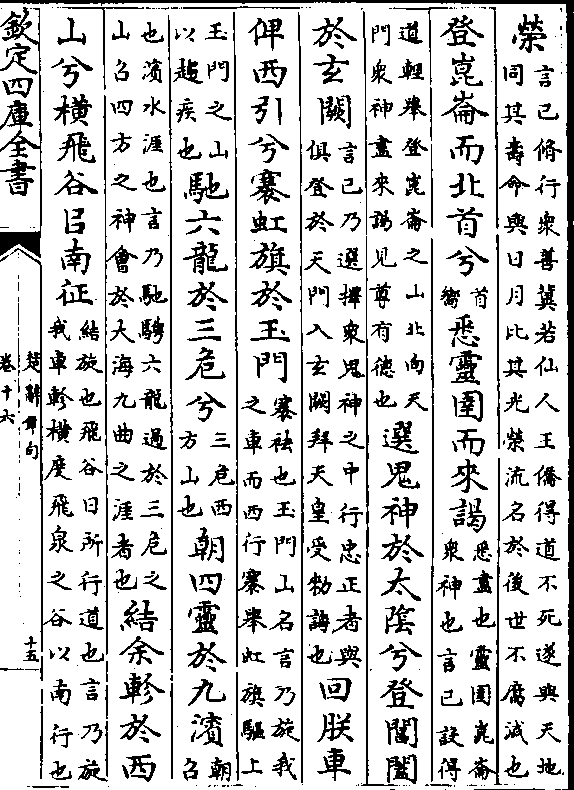 榮言已脩行衆善冀若仙人王僑得道不死遂與天地同其壽命與日月比其光榮流名於後世不腐滅也
登崑崙而北首兮首嚮悉靈圉而來謁悉盡也靈圉崑崙衆神也言已設得
道輕舉登崑崙之山北向天門衆神盡來謁見尊有德也選鬼神於太陰兮登閶闔
於玄闕言已乃選擇衆鬼神之中行忠正者與俱登於天門入玄闕拜天皇受勑誨也回朕車
俾西引兮褰虹旗於玉門褰袪也玉門山名言乃旋我之車而西行褰舉虹旗驅上
玉門之山以趨疾也馳六龍於三危兮三危西方山也朝四靈於九濱朝召
也濱水涯也言乃馳騁六龍過於三危之山召四方之神會於大海九曲之涯者也結余軫於西
山兮橫飛谷㠯南征結旋也飛谷日所行道也言乃旋我車軫橫度飛泉之谷以南行也
欽定四庫全書
楚辭章句
卷十六
十五